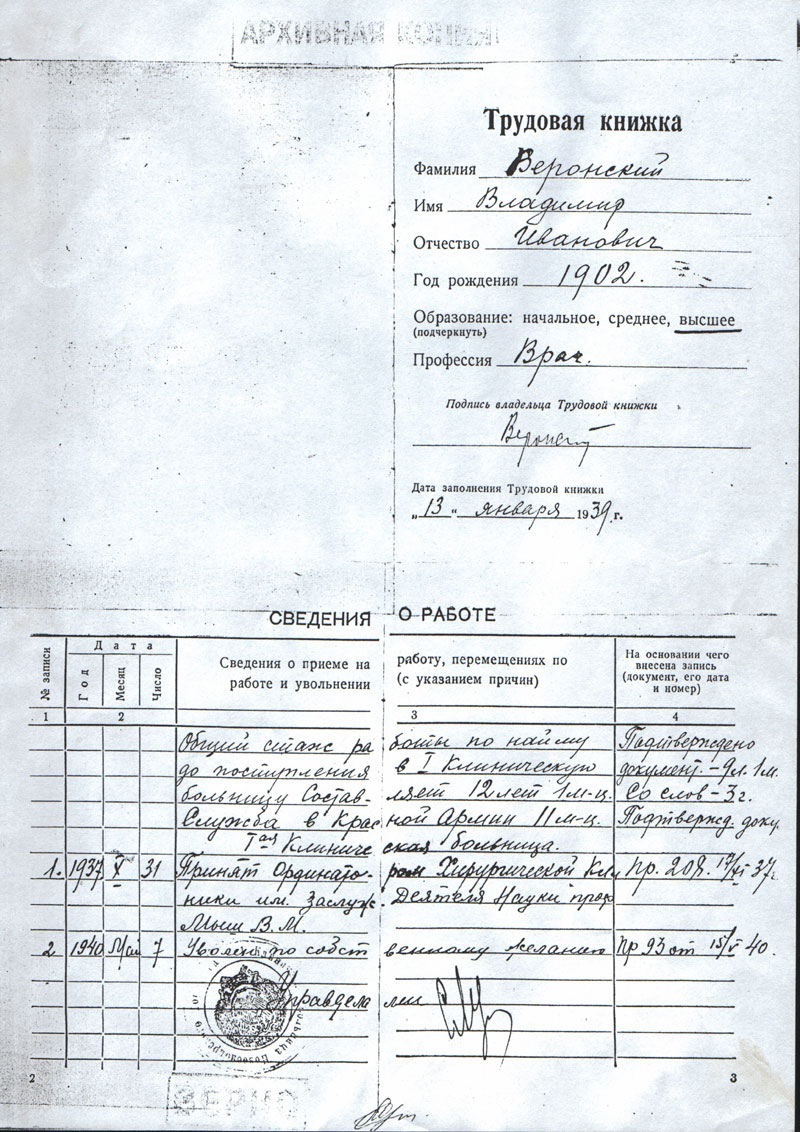 АРХИВНАЯ КОПИЯ
Трудовая книжка
Фамилия Веронский
Имя Владимир
Отчество Иванович
Год рождения 1902.
Образование: начальное, среднее, высшее
(подчеркнуть)
Профессия Врач.
Подпись владельца Трудовой книжки
Дата заполнения Трудовой книжки
„13“ января 1939 г.
СВЕДЕНИЯ О РАБОТЕ
№ записи
Дата
Год
Месяц
Число
Сведения о приеме на работу, перемещениях по
работе и увольнении (с указанием причин)
На основании чего
внесена запись
(документ, его дата
и номер)
1 2 3 4
Общий стаж работы по найму Подтверждено
до поступления в I Клиническую документ. – 9 л. 1 м.
больницу Составляет 12 лет 1 м-ц. Со слов – 3 г.
Служба в Красной Армии 11 м-ц. Подтвержд. доку.
Iая Клиническая больница.
1. 1937 X 31 Принят Ординатором Хирургической Кли Пр. 208. 17/XI 37г
ники им. Заслуж. Деятеля Науки проф
Мыш В. М.
2 1940 Май 7 Уволен по собственному желанию Пр 93 от 15/V 40.
Управделами
2 3